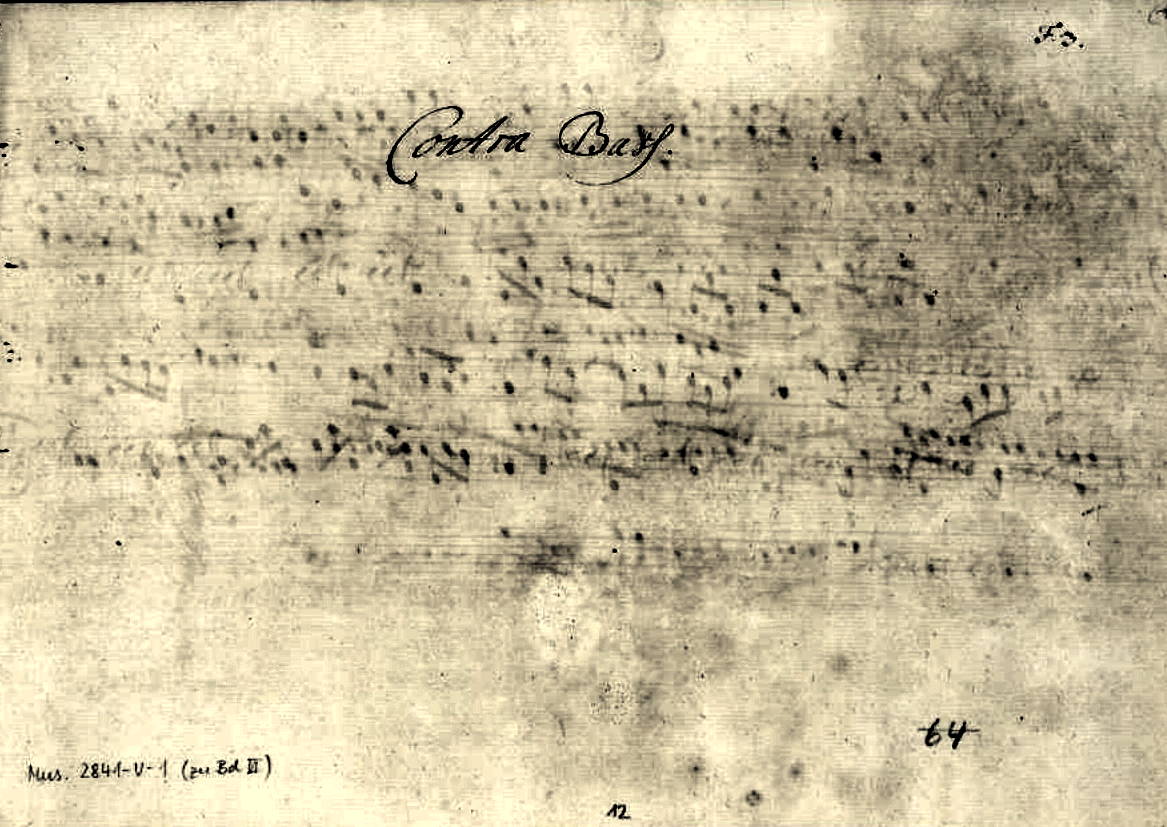 Contra Bass.
64
Mus. 2841-V-1 (zu Bd II)
12